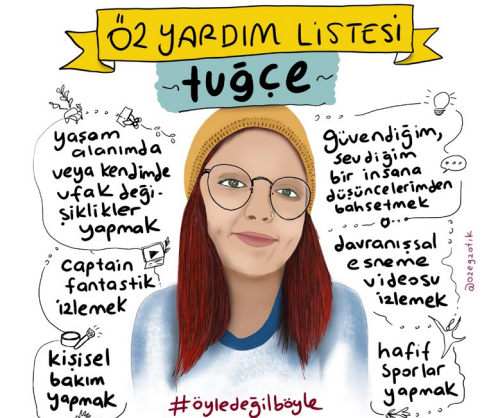 ÖZ YARDIM LİSTESİ
~tuğçe~
yaşam
alanımda
veya kendimde
ufak deği-
şiklikler
yapmak
captain
fantastik
izlemek
kişisel
bakım
yapmak
güvendiğim,
sevdiğim
bir insana
düşüncelerimden
bahsetmek
davranışsal
esneme
videosu
izlemek
hafif
sporlar
yapmak
@ozegzotik
#öyledeğilböyle